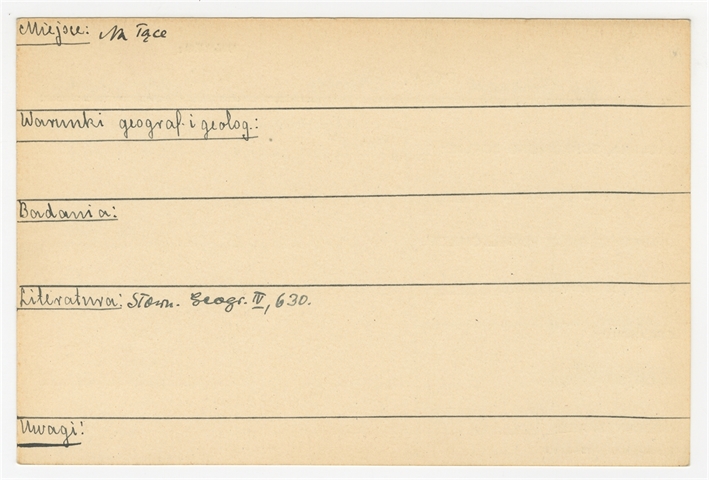 Miejsce: Na łące
Warunki geograf. i geolog.:
Badania:
Literatura: Słown. Geogr. IV, 630.
Uwagi: